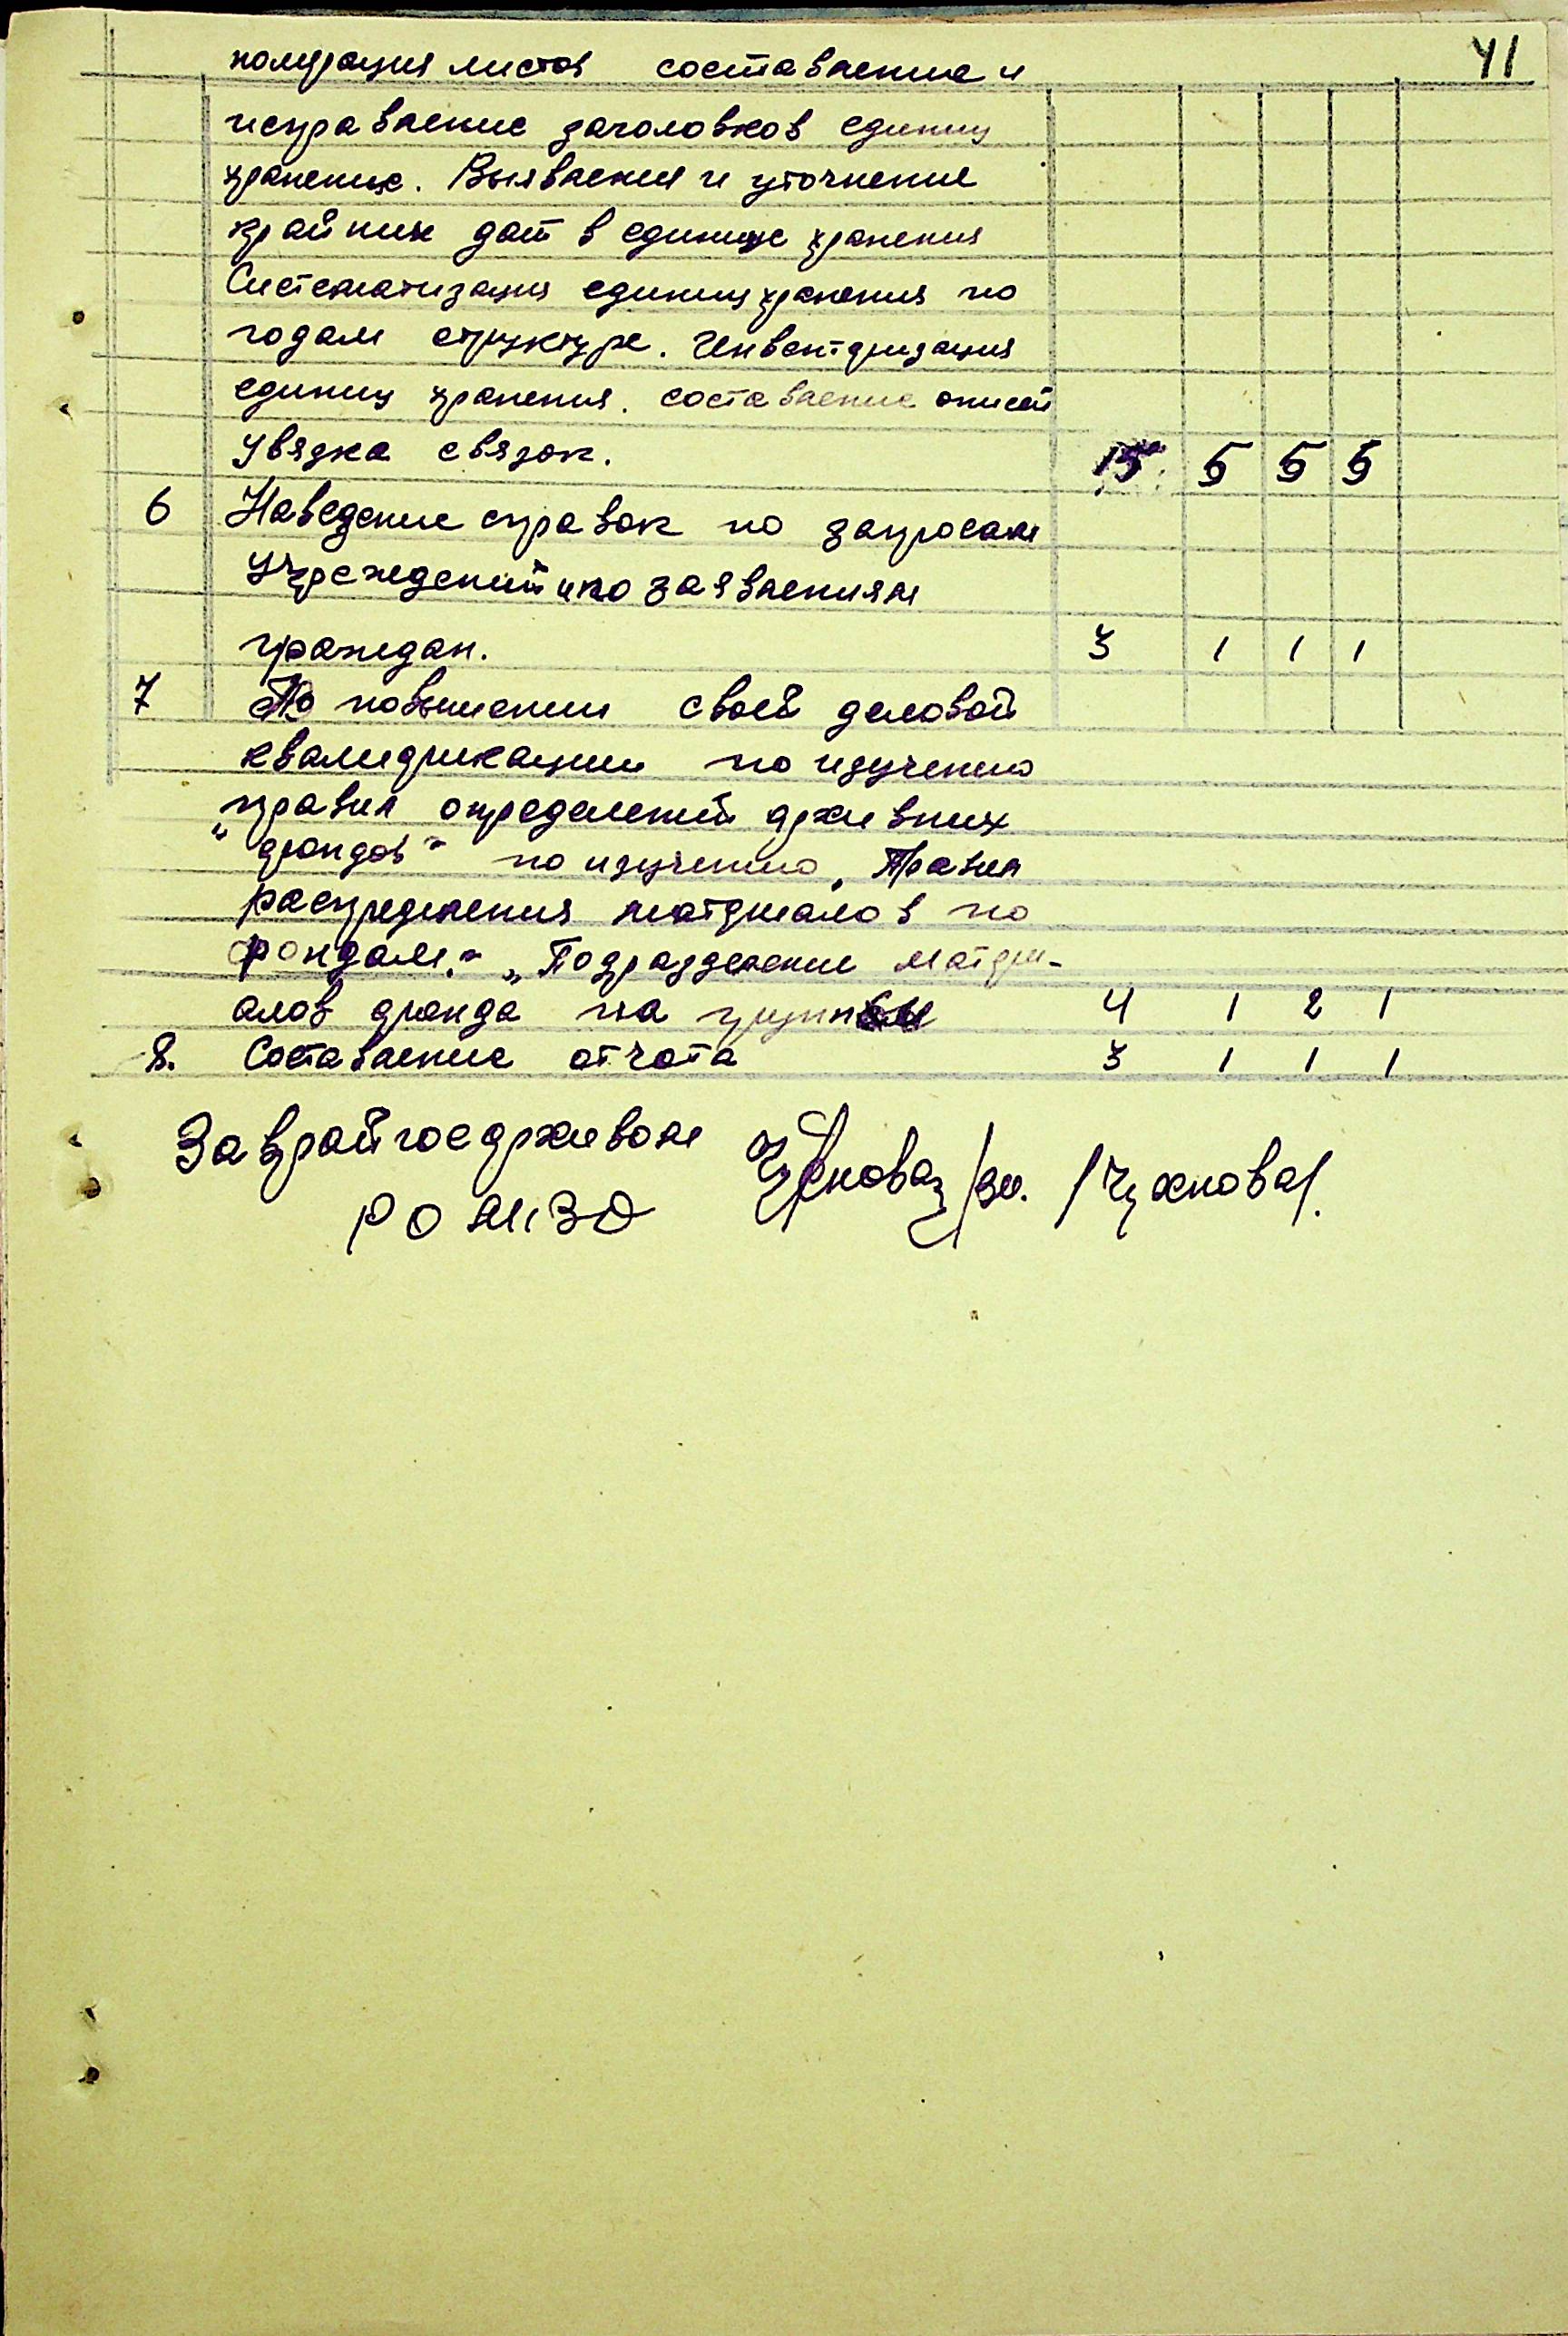 41
номерация листов составление и
исправление заголовков единиц
хранение. Выявления и уточнение
крайних дат в единице хранения
Систематизация единиц хранения по
годам структуре. Инвентаризация
единиц хранения. составление описей
увязка связок. 15 5 5 5
6 Наведение справок по запросам
учреждений и по заявлениям
граждан. 3 1 1 1
7 По повышении своей деловой
квалификации по изучению
правил определений архивных
"фондов" по изучению „Правил
распределения материалов по
фондам." „Подразделение матери-
алов фонда на группы 4 1 2 1
8. Составление отчота 3 1 1 1
Зав райгосархивом
РО МВД /Чухнова/.